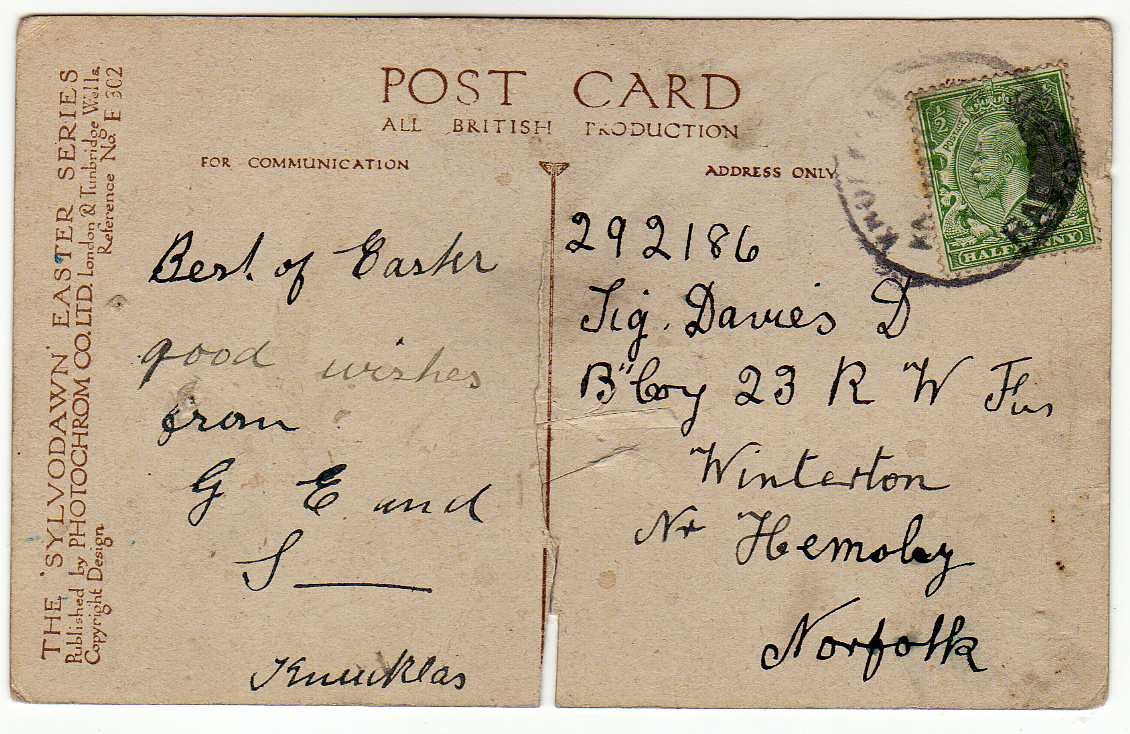 THE 'SYLVODAWN' EASTER SERIES
Published by PHOTOCHROM CO. LTD. London & Tunbridge Wells.
Copyright Design Reference No. E 302
POST CARD
ALL BRITISH PRODUCTION
FOR COMMUNICATION
ADDRESS ONLY
Best of Easter
good wishes
from
G E and
S
Knucklas
292186
Sig. Davies D
"B" Coy 23 R W Fus
Winterton
Nr Hemsby
Norfolk
½
POSTAGE
HALFPENNY